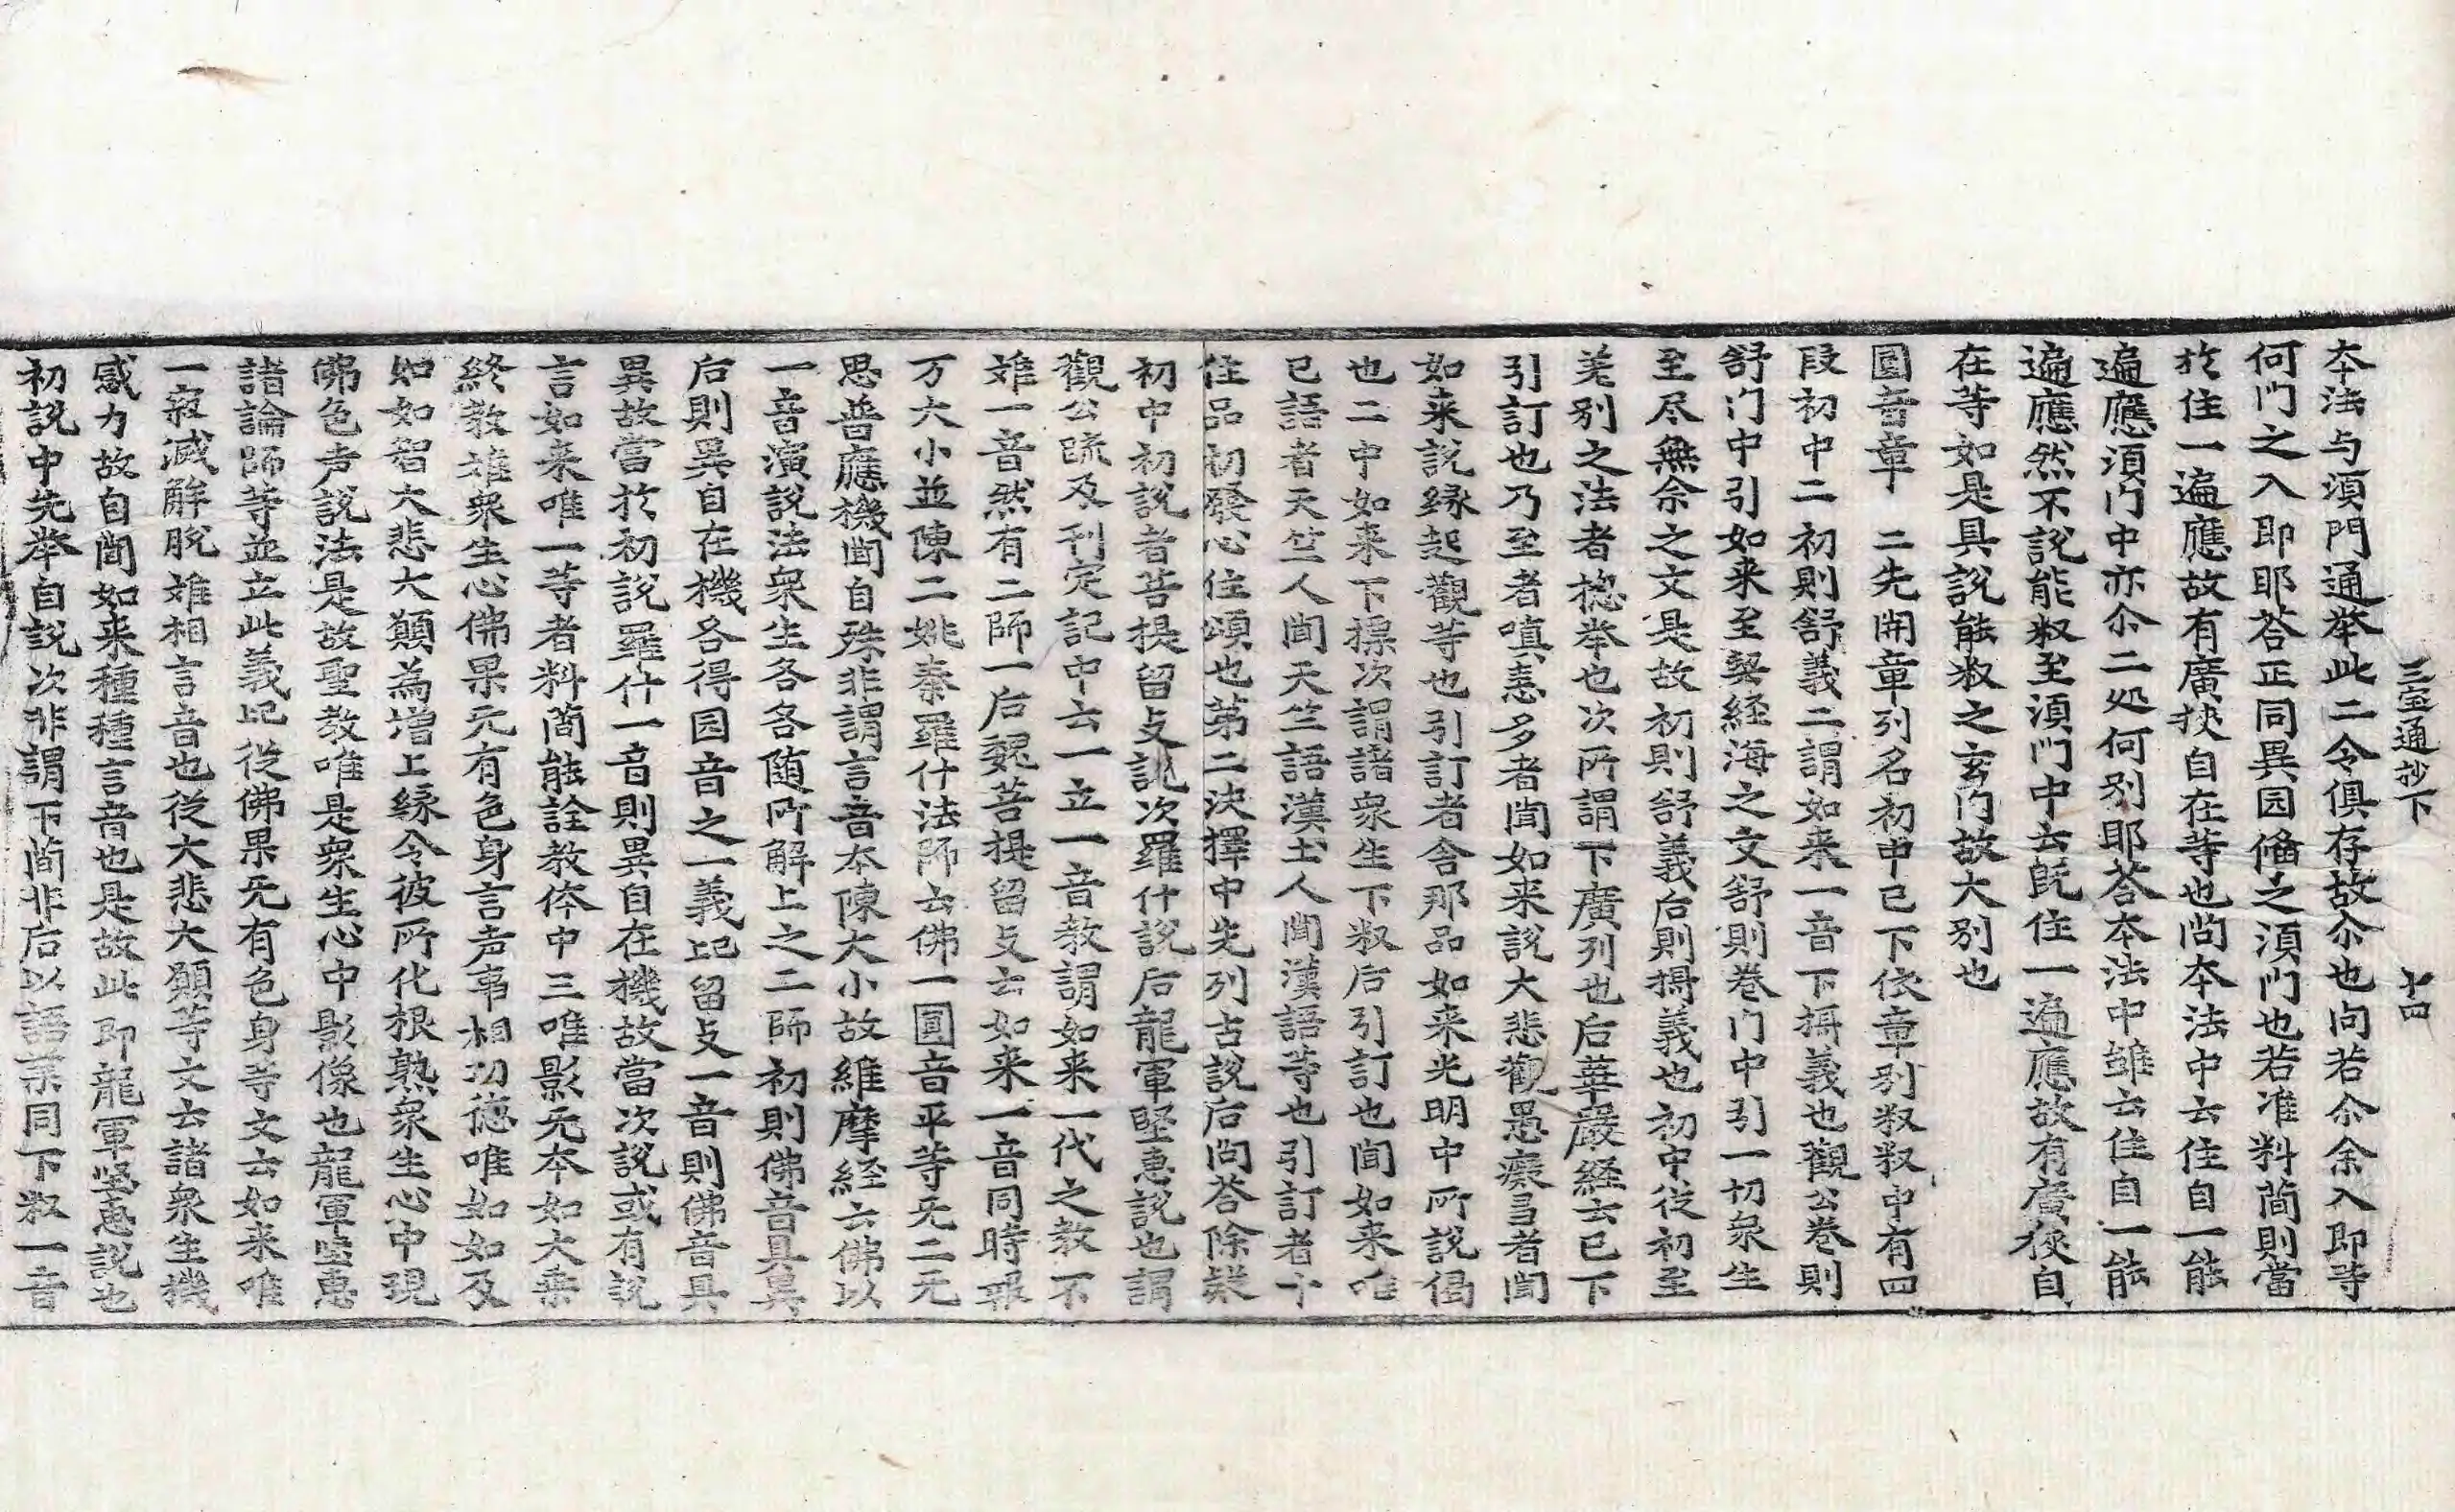 三宝通抄下　十四
本法与湏門通举此二令俱存故尒也向若尒余入即等
何门之入即耶荅正同異因偹之湏门也若准料简則當
扵住一遍應故有廣狹自在等也問本法中云住自一能
遍應湏门中亦尒二処何别耶荅本法中雖云住自一能
遍應然不説能叙至湏门中云既住一遍應故有廣狹自
在等如是具説能叙之玄门故大别也
圓音章　二先開章列名初中已下依章别叙叙中有四
段初中二初則舒義二謂如来一音下攝義也觀公巻則
舒门中引如来至契経海之文舒則巻门中引一切衆生
至尽無余之文是故初則舒義后則攝義也初中從初至
差别之法者捴举也次所謂下廣列也后華嚴経云已下
引訂也乃至者嗔恚多者聞如来説大悲觀愚癡多者聞
如来説縁起觀等也引訂者舍那品如来光明中所説偈
也二中如来下摽次謂諸衆生下叙后引訂也聞如来唯
已語者天竺人聞天竺語漢土人聞漢語等也引訂者十
住品初發心住頌也第二決擇中先列古説后問荅除疑
初中初説者菩提留支説次羅什説后龍軍堅惠説也謂
觀公䟽及刊定記中云一立一音教謂如来一代之教不
雖一音然有二師一后魏菩提留支云如来一音同時報
万大小並陳二姚秦羅什法師云佛一圓音平等无二无
思普應機聞自殊非謂言音本陳大小故維摩経云佛以
一音演説法衆生各各随所解上之二師初則佛音具異
后則異自在機各得圎音之一義記留支一音則佛音具
異故當扵初説羅什一音則異自在機故當次説或有説
言如来唯一等者料简能詮教体中三唯影无本如大乘
終教雖衆生心佛果无有色身言声事相功徳唯如如及
如如智大悲大願為増上縁令彼所化根熟衆生心中現
佛色声説法是故聖教唯是衆生心中影像也龍軍堅惠
諸論師等並立此義記從佛果无有色身等文云如来唯
一寂滅解脱雖相言音也從大悲大願等文云諸衆生機
感力故自聞如来種種言音也是故此即龍軍堅惠説也
初説中先举自説次非謂下简非后以語業同下叙一音